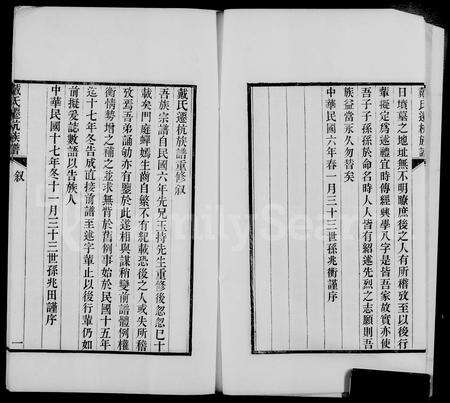 日塋墓之地址無不明瞭庶後之人有所稽攷至以後行
輩擬定爲述禮宜時傳經興學八字是皆吾家故實亦使
吾子子孫孫於命名時人人皆有紹述先烈之志願則吾
族益當永久勿替矣
中華民國六年春一月三十三世孫兆衡謹序
戴氏遷杭族譜
戴氏遷杭族譜重修叙
吾族宗譜自民國六年先兄玉持先生重修後忽忽已十
載矣門庭蟬嫣生齒日繁不有紀載恐後之人或失所稽
攷焉吾弟誦勃亦有鑒於此遂相與謀稍變前譜體例權
衡情勢增之補之並求無背於舊例事始於民國十五年
迄十七年冬告成直接前譜至述字輩止以後行輩仍如
前擬爰誌數語以告族人
中華民國十七年冬十一月三十三世孫兆田謹序
戴氏遷杭族譜
叙
一